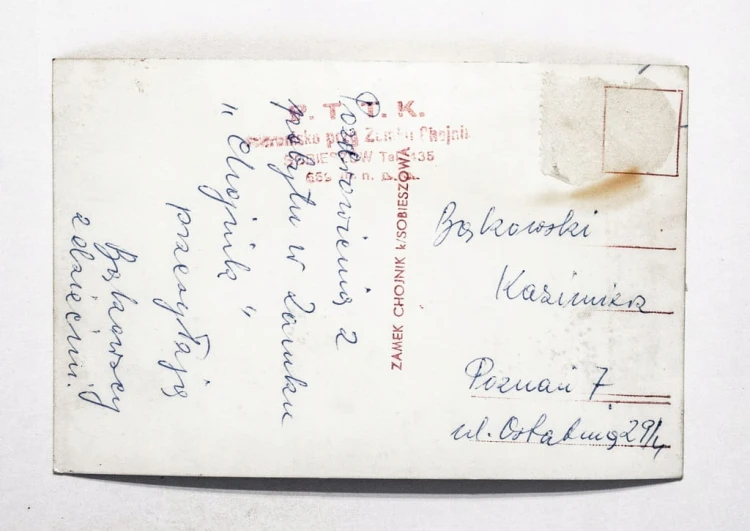 P. T. T. K.
Schronisko przy Zamku Chojnik
SOBIESZÓW Tel. 435
669 m n. p. m.
Pozdrowienia z
pobytu w Zamku
"Chojnik"
przesyłają
Bąkowscy
z dziećmi.
ZAMEK CHOJNIK k/SOBIESZOWA
Bąkowski
Kazimierz
Poznań 7
ul. Ostatnia 29/4